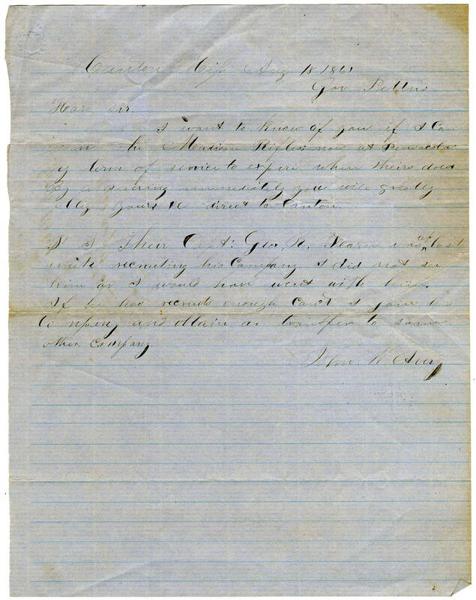 Canton Miss Aug 18 1861
Gov Pettus
Dear Sir
I want to know of you if I can
join the Madison Rifles now at Pensacola
my term of service to expire when theirs does
By answering immediately you will greatly
oblige yours &c direct to Canton
P S Their Capt: Geo. H. Fearn was out last
week recruiting his Company I did not see
him or I would have went with him
If he has recruits enough Can't I join the
Company and obtain a transfer to some
other Company
John W